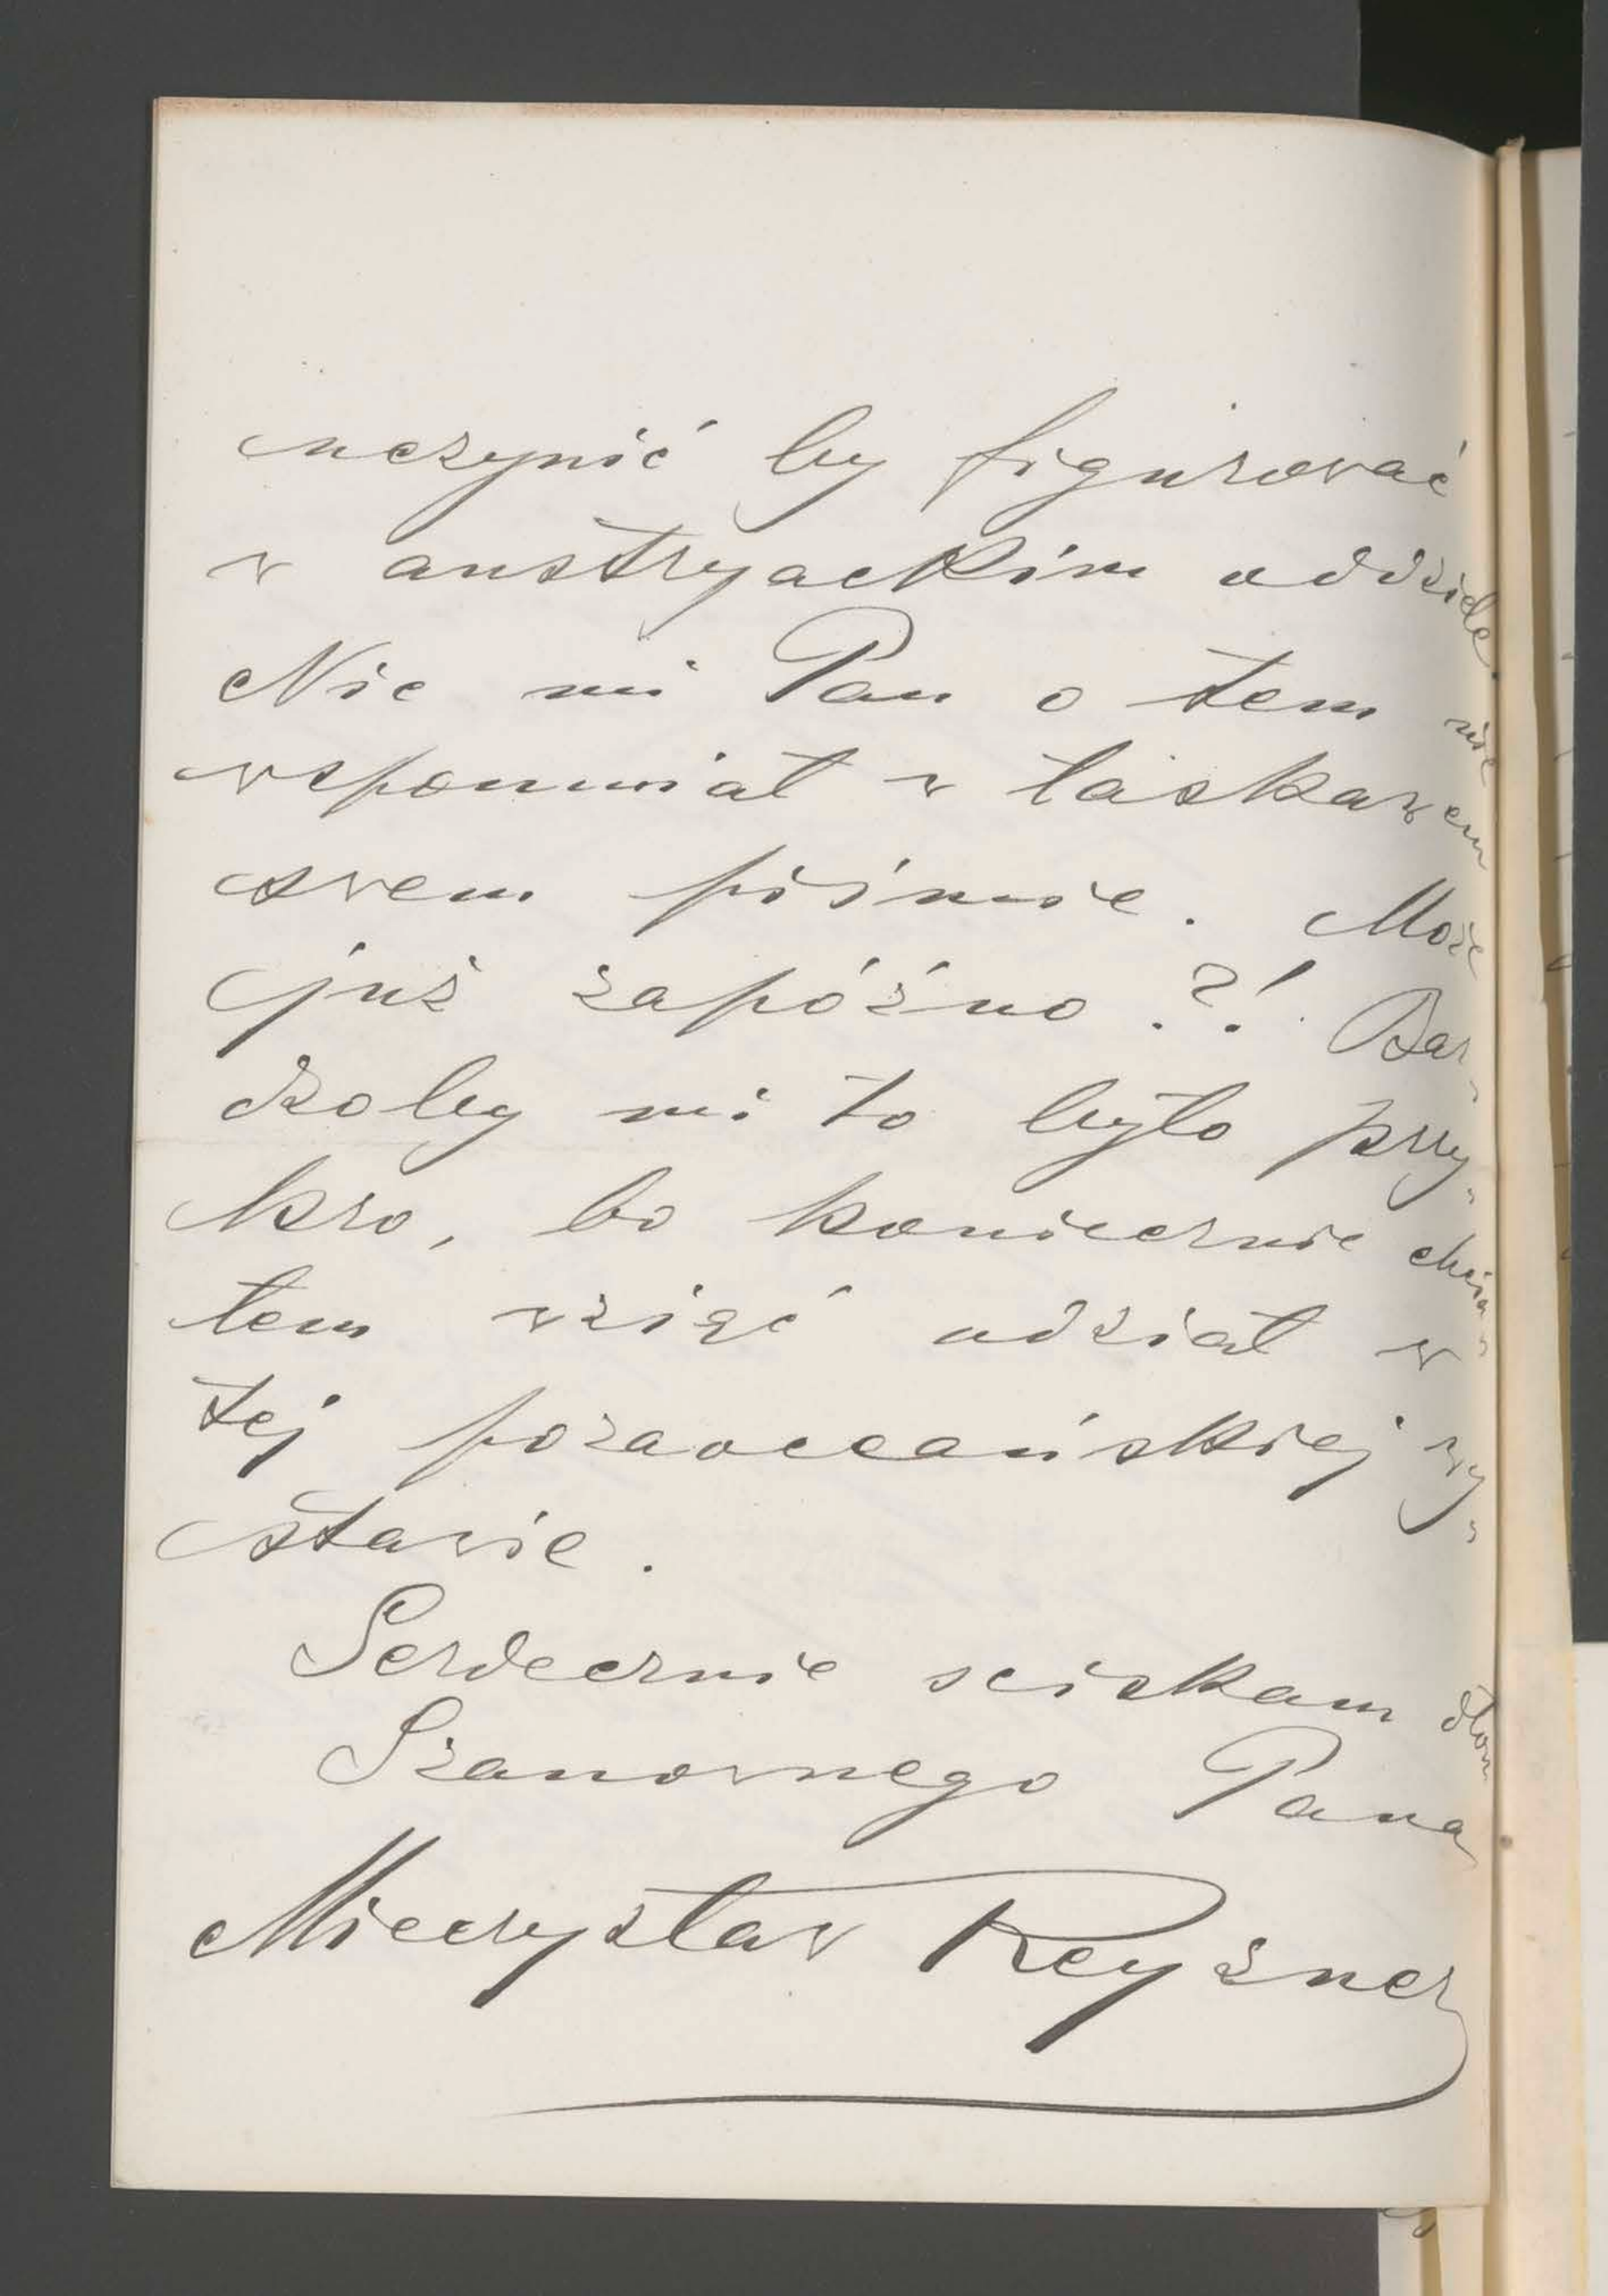 uczynić by figurować
w austryackim oddziele.
Nic mi Pan o tem nie
wspomniał w łaskawem
swem piśmie. Może
już zapóźno?! Bar-
dzoby mi to było przy-
kro, bo koniecznie chcia-
łem wziąć udział w
tej pozaoceańskiej wy-
stawie.
Serdecznie sciskam dłoń
Szanownego Pana
Mieczysław Reyzner